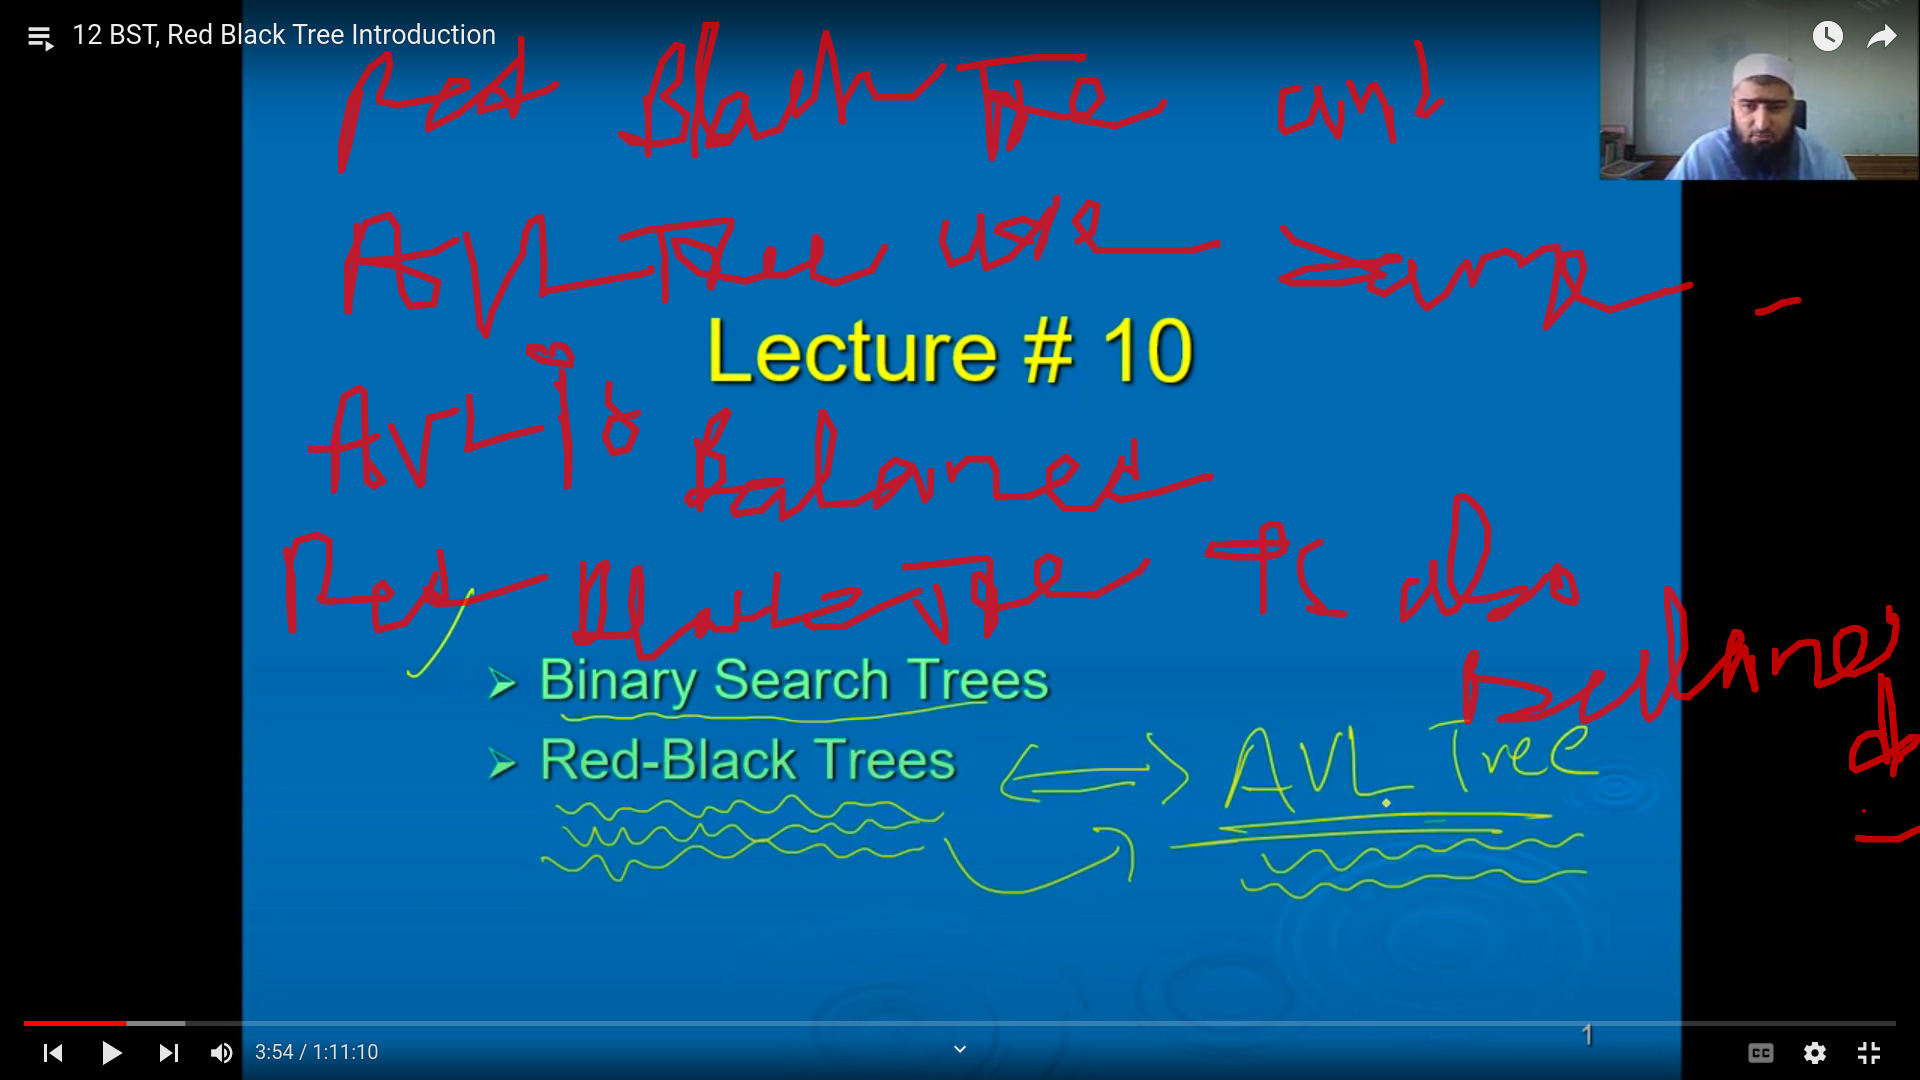 12 BST, Red Black Tree Introduction
Red Black Tree and
AVL Tree use same
Lecture # 10
AVL is Balanced
Red Black Tree is also
Balanced
➢ Binary Search Trees
➢ Red-Black Trees
AVL Tree
1
3:54 / 1:11:10
CC